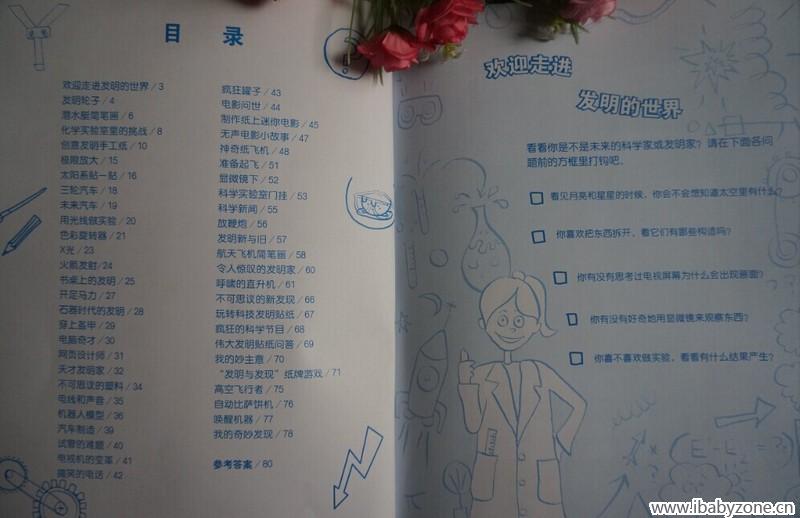 目 录
欢迎走进发明的世界 / 3
发明轮子 / 4
潜水艇简笔画 / 6
化学实验室里的挑战 / 8
创意发明手工纸 / 10
极限放大 / 15
太阳系贴一贴 / 16
三轮汽车 / 18
未来汽车 / 19
用光线做实验 / 20
色彩旋转器 / 21
X光 / 23
火箭发射 / 24
书桌上的发明 / 25
开足马力 / 27
石器时代的发明 / 28
穿上盔甲 / 29
电脑奇才 / 30
网页设计师 / 31
天才发明家 / 32
不可思议的塑料 / 34
电线和声音 / 35
机器人模型 / 36
汽车制造 / 39
试管的难题 / 40
电视机的变革 / 41
搞笑的电话 / 42
疯狂罐子 / 43
电影问世 / 44
制作纸上迷你电影 / 45
无声电影小故事 / 47
神奇纸飞机 / 48
准备起飞 / 51
显微镜下 / 52
科学实验室门挂 / 53
科学新闻 / 55
放鞭炮 / 56
发明新与旧 / 57
航天飞机简笔画 / 58
令人惊叹的发明家 / 60
呼啸的直升机 / 61
不可思议的新发现 / 66
玩转科技发明贴纸 / 67
疯狂的科学节目 / 68
伟大发明贴纸问答 / 69
我的妙主意 / 70
“发明与发现”纸牌游戏 / 71
高空飞行者 / 75
自动比萨饼机 / 76
唤醒机器 / 77
我的奇妙发现 / 78
参考答案 / 80
欢迎走进
发明的世界
看看你是不是未来的科学家或发明家？请在下面各问
题前的方框里打钩吧。
看见月亮和星星的时候，你会不会想知道太空里有什么？
你喜欢把东西拆开，看它们有哪些构造吗？
你有没有思考过电视屏幕为什么会出现画面？
你有没有好奇地用显微镜来观察东西？
你喜不喜欢做实验，看看有什么结果产生？
www.ibabyzone.cn